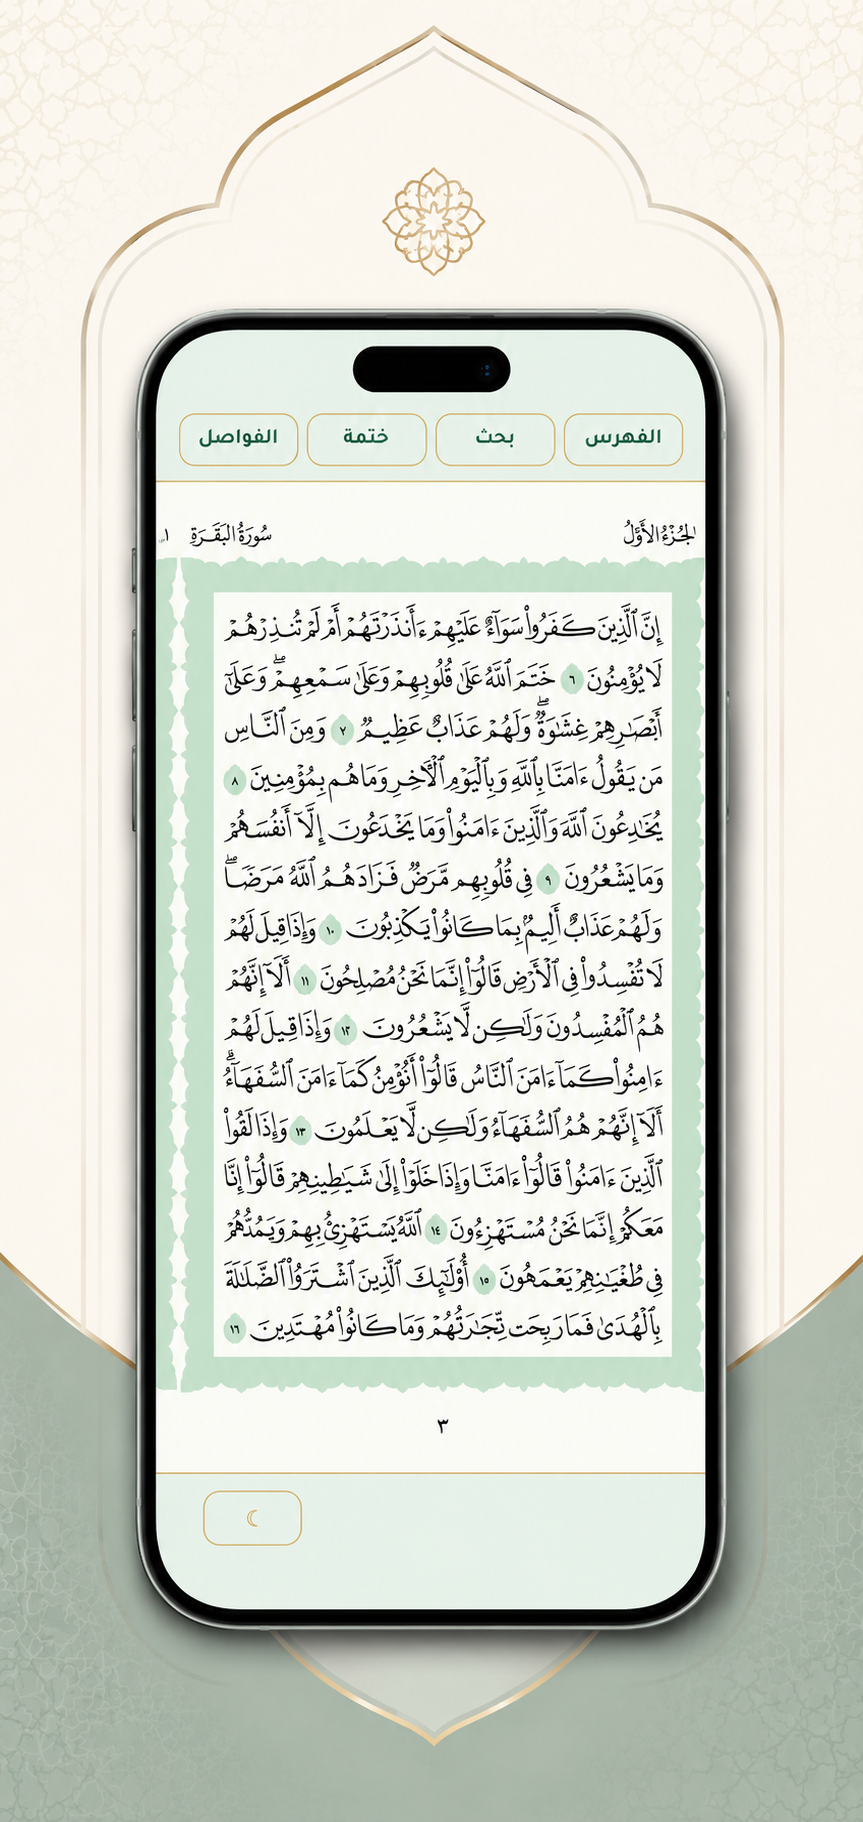 الفهرس
بحث
ختمة
الفواصل
الجُزْءُ الأَوَّلُ
سُورَةُ البَقَرَةِ
١
إِنَّ ٱلَّذِينَ كَفَرُواْ سَوَآءٌ عَلَيْهِمْ ءَأَنذَرْتَهُمْ أَمْ لَمْ تُنذِرْهُمْ
لَا يُؤْمِنُونَ ٦ خَتَمَ ٱللَّهُ عَلَىٰ قُلُوبِهِمْ وَعَلَىٰ سَمْعِهِمْۖ وَعَلَىٰٓ
أَبْصَـٰرِهِمْ غِشَـٰوَةٌۖ وَلَهُمْ عَذَابٌ عَظِيمٌ ٧ وَمِنَ ٱلنَّاسِ
مَن يَقُولُ ءَامَنَّا بِٱللَّهِ وَبِٱلْيَوْمِ ٱلْأَخِرِ وَمَا هُم بِمُؤْمِنِينَ ٨
يُخَـٰدِعُونَ ٱللَّهَ وَٱلَّذِينَ ءَامَنُواْ وَمَا يَخْدَعُونَ إِلَّآ أَنفُسَهُمْ
وَمَا يَشْعُرُونَ ٩ فِى قُلُوبِهِم مَّرَضٌ فَزَادَهُمُ ٱللَّهُ مَرَضًاۖ
وَلَهُمْ عَذَابٌ أَلِيمٌۢ بِمَا كَانُواْ يَكْذِبُونَ ١٠ وَإِذَا قِيلَ لَهُمْ
لَا تُفْسِدُواْ فِى ٱلْأَرْضِ قَالُوٓاْ إِنَّمَا نَحْنُ مُصْلِحُونَ ١١ أَلَآ إِنَّهُمْ
هُمُ ٱلْمُفْسِدُونَ وَلَـٰكِن لَّا يَشْعُرُونَ ١٢ وَإِذَا قِيلَ لَهُمْ
ءَامِنُواْ كَمَآ ءَامَنَ ٱلنَّاسُ قَالُوٓاْ أَنُؤْمِنُ كَمَآ ءَامَنَ ٱلسُّفَهَآءُۗ
أَلَآ إِنَّهُمْ هُمُ ٱلسُّفَهَآءُ وَلَـٰكِن لَّا يَعْلَمُونَ ١٣ وَإِذَا لَقُواْ
ٱلَّذِينَ ءَامَنُواْ قَالُوٓاْ ءَامَنَّا وَإِذَا خَلَوْاْ إِلَىٰ شَيَـٰطِينِهِمْ قَالُوٓاْ إِنَّا
مَعَكُمْ إِنَّمَا نَحْنُ مُسْتَهْزِءُونَ ١٤ ٱللَّهُ يَسْتَهْزِئُ بِهِمْ وَيَمُدُّهُمْ
فِى طُغْيَـٰنِهِمْ يَعْمَهُونَ ١٥ أُوْلَـٰٓئِكَ ٱلَّذِينَ ٱشْتَرَوُاْ ٱلضَّلَـٰلَةَ
بِٱلْهُدَىٰ فَمَا رَبِحَت تِّجَـٰرَتُهُمْ وَمَا كَانُواْ مُهْتَدِينَ ١٦
٣